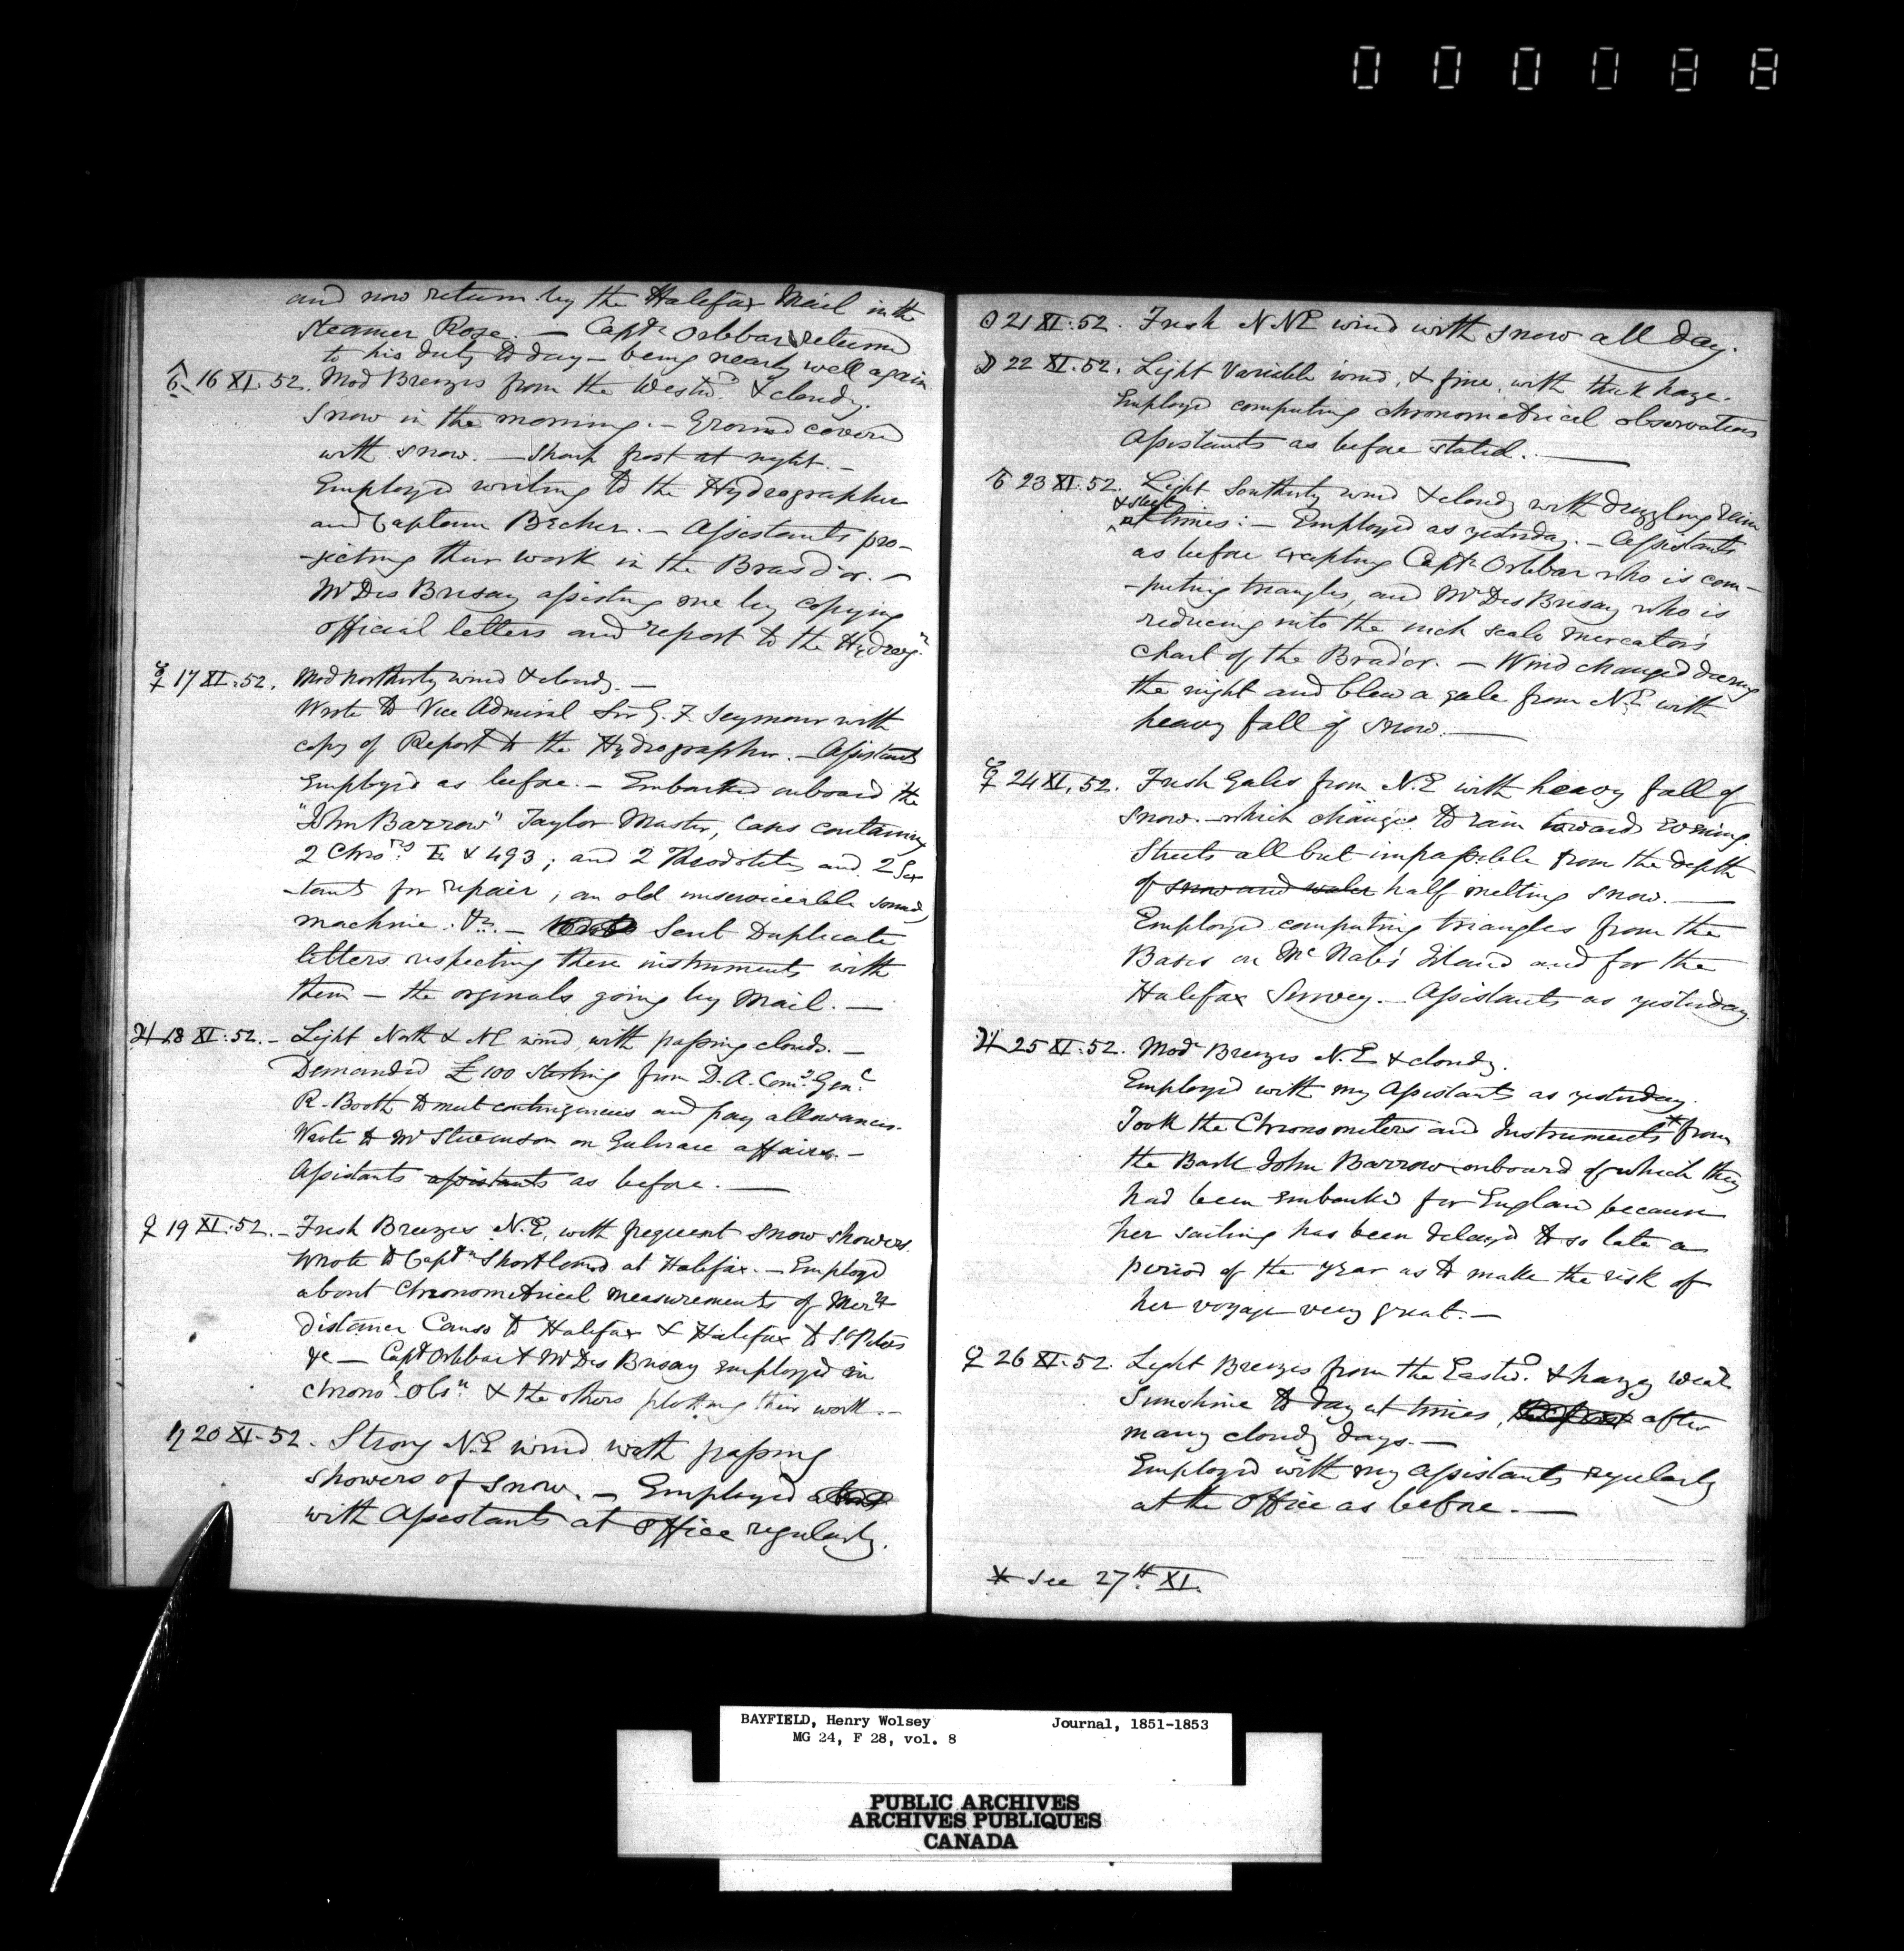 000088
and now return by the Halifax Mail in the
Steamer Rose. — Captn Orlebar returned
to his duty to day — being nearly well again
♂ 16 XI. 52. Mod Breezes from the Westwd & cloudy.
Snow in the morning. — Ground covered
with snow. — Sharp frost at night. —
Employed writing to the Hydrographer
and Captain Becher. — Assistants pro-
-jecting their work in the Bras d'or. —
Mr Des Brisay assisting me by copying
official letters and report to the Hydrogr
☿ 17 XI. 52. Mod Northerly wind & cloudy. —
Wrote to Vice Admiral Sir G. F. Seymour with
copy of Report to the Hydrographer. — Assistants
Employed as before. — Embarked onboard the
"John Barrow" Taylor Master, Cases containing
2 Chrors E & 493; and 2 Theodolites and 2 Sex
-tants for repair; an old unserviceable sound
machine. &c. — Sent Duplicate
letters respecting these instruments with
them — the orginals going by Mail. —
♃ 18 XI. 52. — Light North & NE wind, with passing clouds. —
Demanded £100 Sterling from D. A. Comy Genl
R. Booth to meet contingencies and pay allowances.
Wrote to Mr Stevenson on Gulnare affairs. —
Assistants assistants as before. —
♀ 19 XI. 52. — Fresh Breezes N.E, with frequent snow showers.
Wrote to Captn Shortland at Halifax. — Employed
about Chronometrical measurements of Mern
distances Canso to Halifax & Halifax to St Peters
&c — Capt Orlebar & Mr Des Brisay employed in
Chronol Obsns & the others plotting their work. —
♄ 20 XI. 52. Strong N.E wind with passing
showers of snow. — Employed about
with Assistants at Office regularly.
☉ 21 XI. 52. Fresh NNE wind with snow all day.
☽ 22 XI. 52. Light Variable wind, & fine, with thick haze.
Employed computing chronometrical observations
Assistants as before stated. —
♂ 23 XI. 52. Light Southerly wind & cloudy with drizzling rain
& sleet
at times: — Employed as yesterday. — Assistants
as before excepting Captn Orlebar who is com-
-puting triangles, and Mr Des Brisay who is
reducing into the inch scale mercator's
chart of the Brad'or. — Wind changed during
the night and blew a gale from N.E with
heavy fall of snow. —
☿ 24 XI. 52. Fresh Gales from N.E with heavy fall of
snow. — which changed to rain towards evening.
Streets all but impassible from the depth
of snow and water half melting snow. —
Employed computing triangles from the
Bases on McNab's Island and for the
Halifax Survey. — Assistants as yesterday.
♃ 25 XI. 52. Modr Breezes N.E & cloudy.
Employed with my Assistants as yesterday.
Took the Chronometers and Instruments* from
the Bark John Barrow onboard of which they
had been embarked for England because
her sailing has been delayed to so late a
period of the year as to make the risk of
her voyage very great. —
♀ 26 XI. 52. Light Breezes from the Eastwd & hazy weatr
Sunshine to day at times, after
many cloudy days. —
Employed with my Assistants regularly
at the Office as before. —
* See 27th XI.
BAYFIELD, Henry Wolsey Journal, 1851-1853
MG 24, F 28, vol. 8
PUBLIC ARCHIVES
ARCHIVES PUBLIQUES
CANADA